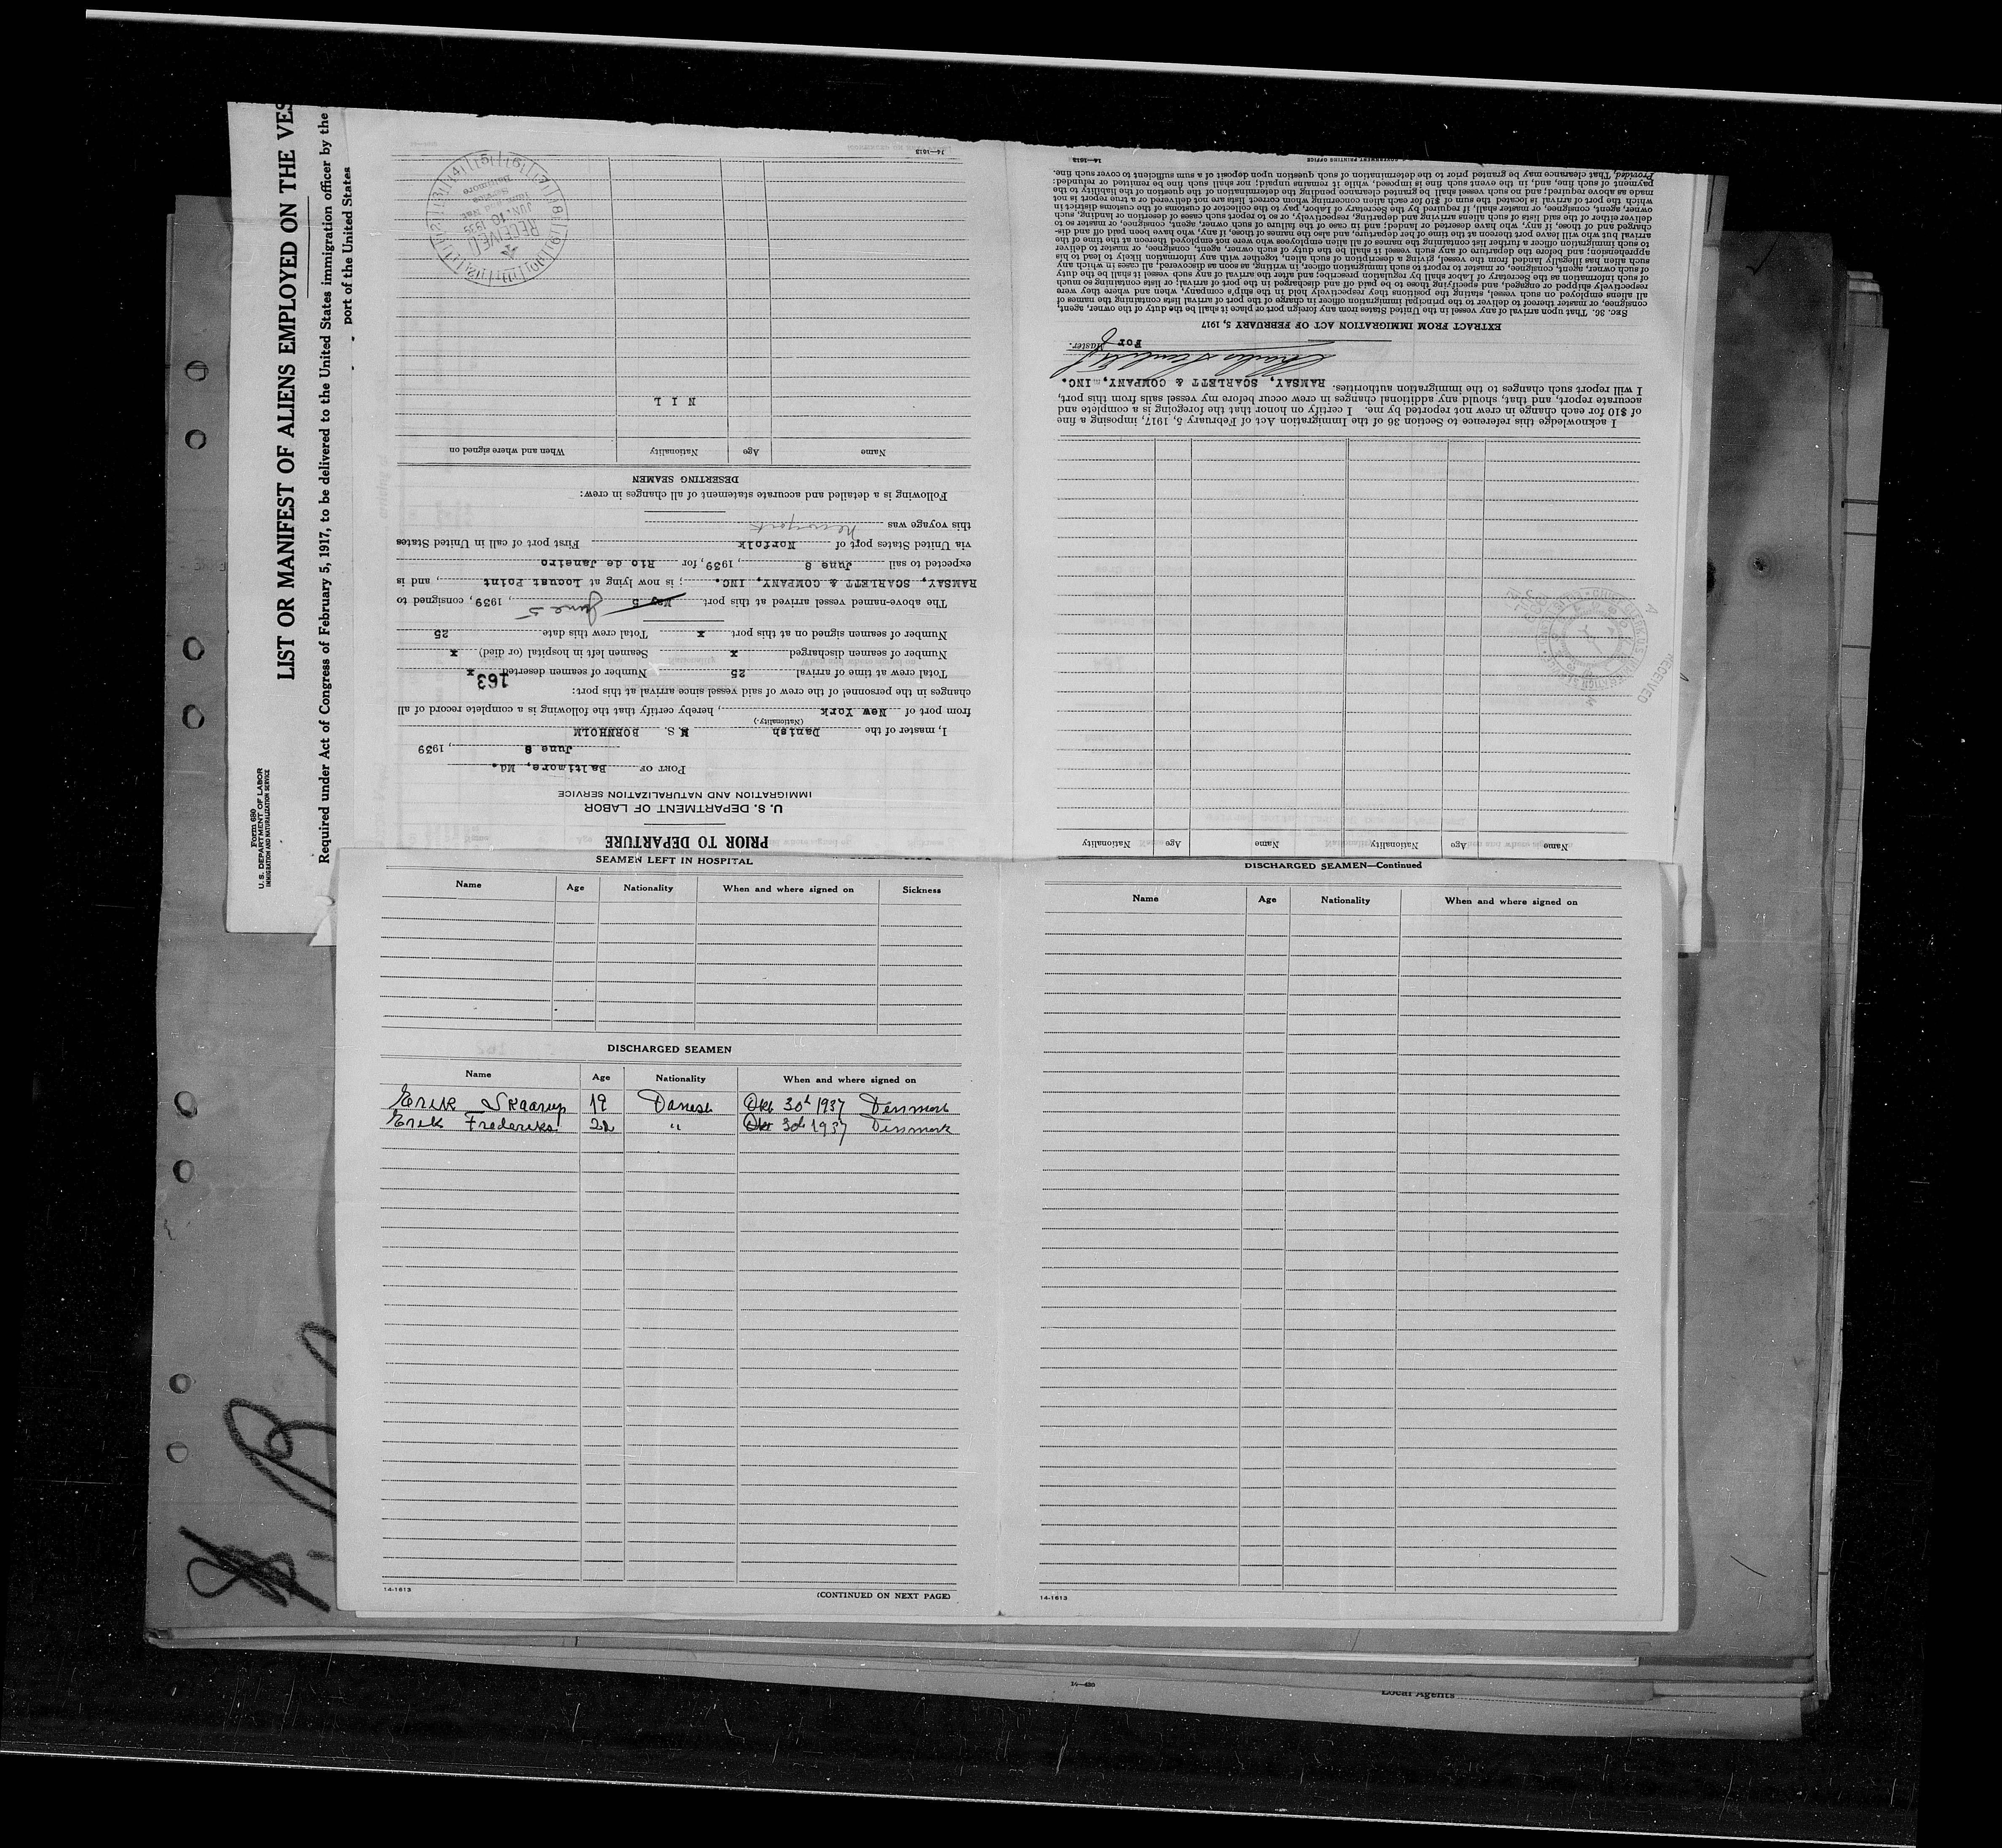 Form 680
U. S. DEPARTMENT OF LABOR
IMMIGRATION AND NATURALIZATION SERVICE
LIST OR MANIFEST OF ALIENS EMPLOYED ON THE VES
Required under Act of Congress of February 5, 1917, to be delivered to the United States immigration officer by the
port of the United States
PRIOR TO DEPARTURE
U. S. DEPARTMENT OF LABOR
IMMIGRATION AND NATURALIZATION SERVICE
PORT OF Baltimore, Md.
June 8, 1939
I, master of the Danish M S. BORNHOLM
(Nationality.)
from port of New York, hereby certify that the following is a complete record of all
changes in the personnel of the crew of said vessel since arrival at this port:
163
Total crew at time of arrival 25 Number of seamen deserted x
Number of seamen discharged x Seamen left in hospital (or died) x
Number of seamen signed on at this port x Total crew this date 25
The above-named vessel arrived at this port May 5 June 5, 1939, consigned to
RAMSAY, SCARLETT & COMPANY, INC.; is now lying at Locust Point, and is
expected to sail June 8, 1939, for Rio de Janeiro
via United States port of Norfolk First port of call in United States
this voyage was New York
Following is a detailed and accurate statement of all changes in crew:
DESERTING SEAMEN
Name Age Nationality When and where signed on
N I L
RECEIVED
JUN. 10 1939
Baltimore
14—1613
Name Age Nationality Name Age Nationality
I acknowledge this reference to Section 36 of the Immigration Act of February 5, 1917, imposing a fine
of $10 for each change in crew not reported by me. I certify on honor that the foregoing is a complete and
accurate report, and that, should any additional changes in crew occur before my vessel sails from this port,
I will report such changes to the immigration authorities. RAMSAY, SCARLETT & COMPANY, INC.
For Master.
EXTRACT FROM IMMIGRATION ACT OF FEBRUARY 5, 1917
SEC. 36. That upon arrival of any vessel in the United States from any foreign port or place it shall be the duty of the owner, agent,
consignee, or master thereof to deliver to the principal immigration officer in charge of the port of arrival lists containing the names of
all aliens employed on such vessel, stating the positions they respectively hold in the ship's company, when and where they were
respectively shipped or engaged, and specifying those to be paid off and discharged in the port of arrival; or lists containing so much
of such information as the Secretary of Labor shall by regulation prescribe; and after the arrival of any such vessel it shall be the duty
of such owner, agent, consignee, or master to report to such immigration officer, in writing, as soon as discovered, all cases in which any
such alien has illegally landed from the vessel, giving a description of such alien, together with any information likely to lead to his
apprehension; and before the departure of any such vessel it shall be the duty of such owner, agent, consignee, or master to deliver
to such immigration officer a further list containing the names of all alien employees who were not employed thereon at the time of the
arrival but who will leave port thereon at the time of her departure, and also the names of those, if any, who have been paid off and dis-
charged and of those, if any, who have deserted or landed; and in case of the failure of such owner, agent, consignee, or master so to
deliver either of the said lists of such aliens arriving and departing, respectively, or so to report such cases of desertion or landing, such
owner, agent, consignee, or master shall, if required by the Secretary of Labor, pay to the collector of customs of the customs district in
which the port of arrival is located the sum of $10 for each alien concerning whom correct lists are not delivered or a true report is not
made as above required; and no such vessel shall be granted clearance pending the determination of the question of the liability to the
payment of such fine, and, in the event such fine is imposed, while it remains unpaid; nor shall such fine be remitted or refunded:
Provided, That clearance may be granted prior to the determination of such question upon deposit of a sum sufficient to cover such fine.
14—1613
RECEIVED
SEAMEN LEFT IN HOSPITAL
Name Age Nationality When and where signed on Sickness
DISCHARGED SEAMEN
Name Age Nationality When and where signed on
Erik Skaarup 19 Danish Okt 30th 1937 Denmark
Erik Frederiks 22 " Okt 30th 1937 Denmark
14-1613
(CONTINUED ON NEXT PAGE)
DISCHARGED SEAMEN—Continued
Name Age Nationality When and where signed on
14-1613
Local Agents